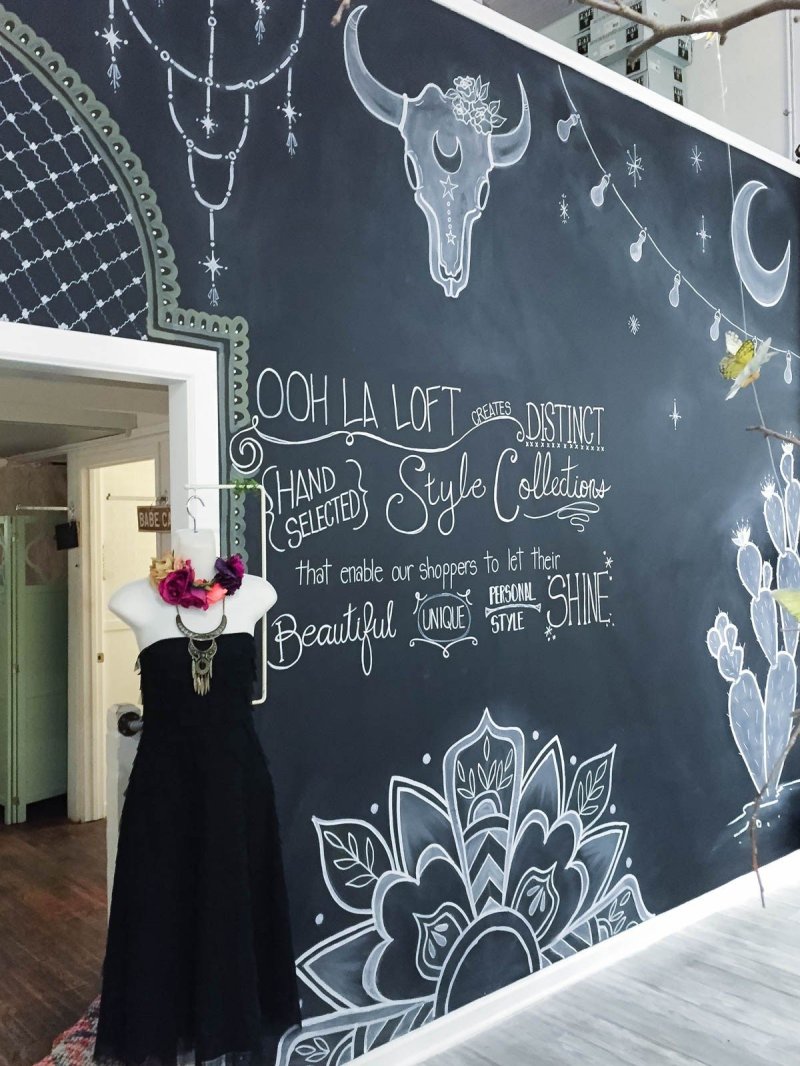 OOH LA LOFT CREATES DISTINCT
{HAND SELECTED} Style Collections
that enable our shoppers to let their
Beautiful UNIQUE PERSONAL STYLE SHINE
BABE CA